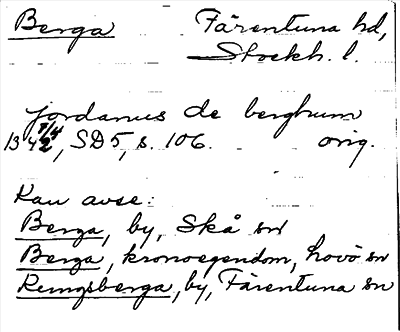 Berga Färentuna hd,
Stockh. l.
Jordanus de berghum
1342 7/4, SD 5, s. 106. orig.
Kan avse:
Berga, by, Skå sn
Berga, kronoegendom, Lovö sn
Ringsberga, by, Färentuna sn